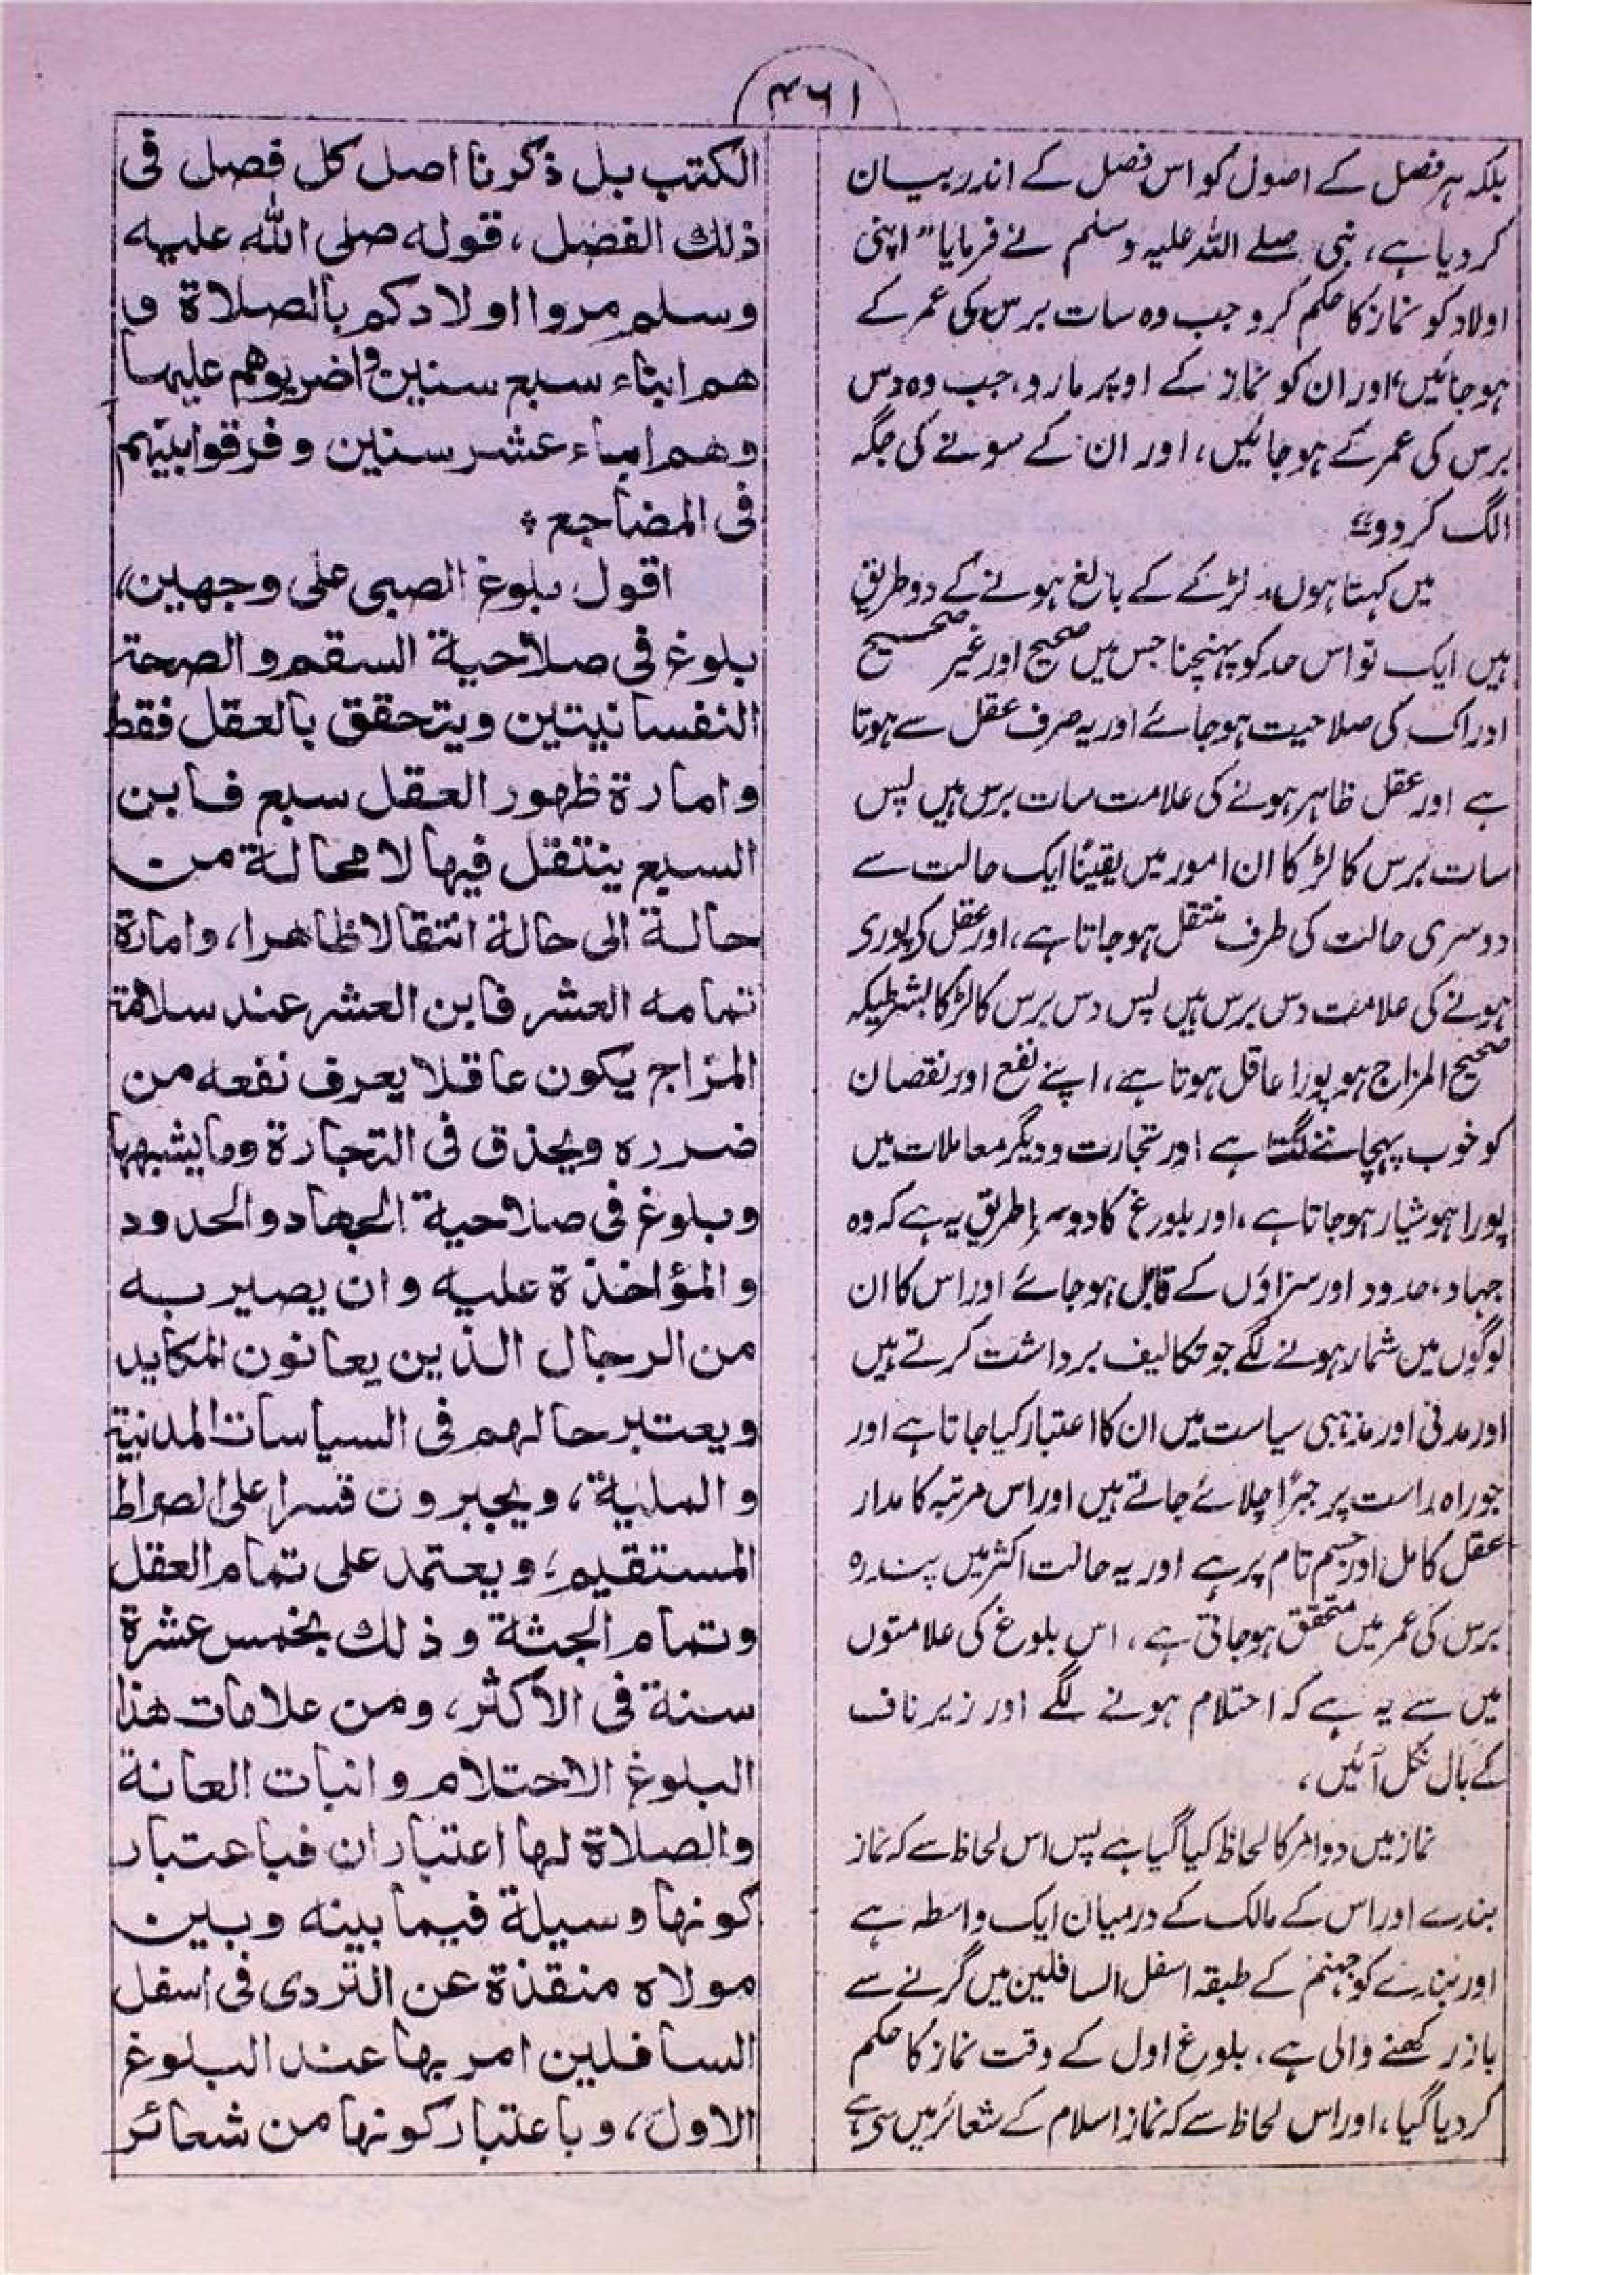 ۴۶۱
بلکہ ہر فصل کے اصول کو اس فصل کے اندر بیان
کر دیا ہے، نبی صلے اللہ علیہ وسلم نے فرمایا "اپنی
اولاد کو نماز کا حکم کرو جب وہ سات برس کی عمر کے
ہو جائیں، اور ان کو نماز کے اوپر مارو، جب وہ دس
برس کی عمر کے ہو جائیں، اور ان کے سونے کی جگہ
الگ کر دو"
میں کہتا ہوں۔ لڑکے کے بالغ ہونے کے دو طریق
ہیں ایک تو اس حد کو پہنچنا جس میں صحیح اور غیر صحیح
ادراک کی صلاحیت ہو جائے اور یہ صرف عقل سے ہوتا
ہے اور عقل ظاہر ہونے کی علامت سات برس ہیں پس
سات برس کا لڑکا ان امور میں یقیناً ایک حالت سے
دوسری حالت کی طرف منتقل ہو جاتا ہے، اور عقل کے پوری
ہونے کی علامت دس برس ہیں پس دس برس کا لڑکا بشرطیکہ
صحیح المزاج ہو پورا عاقل ہوتا ہے، اپنے نفع اور نقصان
کو خوب پہچاننے لگتا ہے اور تجارت و دیگر معاملات میں
پورا ہوشیار ہو جاتا ہے، اور بلورغ کا دوسرا طریق یہ ہے کہ وہ
جہاد، حدود اور سزاؤں کے قابل ہو جائے اور اس کا ان
لوگوں میں شمار ہونے لگے جو تکالیف برداشت کرتے ہیں
اور مدنی اور مذہبی سیاست میں ان کا اعتبار کیا جاتا ہے اور
جو راہ راست پر جبراً چلائے جاتے ہیں اور اس مرتبہ کا مدار
عقل کامل اور جسم تام پر ہے اور یہ حالت اکثر میں پندرہ
برس کی عمر میں متحقق ہو جاتی ہے، اس بلوغ کی علامتوں
میں سے یہ ہے کہ احتلام ہونے لگے اور زیر ناف
کے بال نکل آئیں،
نماز میں دو امر کا لحاظ کیا گیا ہے پس اس لحاظ سے کہ نماز
بندے اور اس کے مالک کے درمیان ایک واسطہ ہے
اور بندے کو جہنم کے طبقہ اسفل السافلین میں گرنے سے
باز رکھنے والی ہے، بلوغ اول کے وقت نماز کا حکم
کر دیا گیا، اور اس لحاظ سے کہ نماز اسلام کے شعائر میں سے ہے
الکتب بل ذکرنا اصل کل فصل فی
ذلك الفصل، قوله صلی اللہ علیه
وسلم مروا اولادکم بالصلاة و
هم ابناء سبع سنین واضربوهم علیها
وهم ابناء عشر سنین وفرقوا بینهم
فی المضاجع ؞
اقول بلوغ الصبی علی وجهین،
بلوغ فی صلاحیة السقم والصحة
النفسانیتین ویتحقق بالعقل فقط
وامارة ظهور العقل سبع فابن
السبع ینتقل فیها لا محالة من
حالة الی حالة انتقالا ظاهرا، وامارة
تمامه العشر فابن العشر عند سلامة
المزاج یکون عاقلا یعرف نفعه من
ضرره ویحذق فی التجارة وما یشبهها
وبلوغ فی صلاحیة الجهاد والحدود
والمؤاخذة علیه وان یصیر به
من الرجال الذین یعانون المکاید
ویعتبر حالهم فی السیاسات المدنیة
والملیة، ویجبرون قسرا علی الصراط
المستقیم، ویعتمد علی تمام العقل
وتمام الجثة وذلك بخمس عشرة
سنة فی الاکثر، ومن علامات هذا
البلوغ الاحتلام وانبات العانة
والصلاة لها اعتباران فباعتبار
کونها وسیلة فیما بینه وبین
مولاه منقذة عن التردی فی اسفل
السافلین امر بها عند البلوغ
الاول، وباعتبار کونها من شعائر